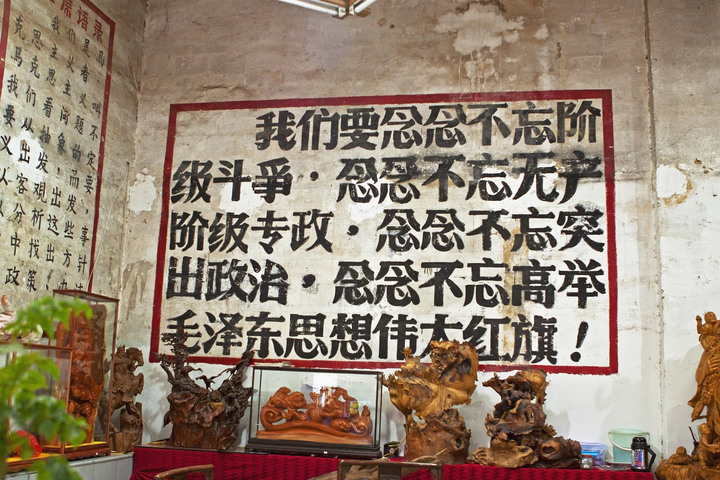 席语录
我们是马
克思主义者，
马克思主义叫
我们看问题不
要从抽象的定
义出发，而要
从客观
从分析这些事
中找出方针
政策，办
我们要念念不忘阶
级斗争·念念不忘无产
阶级专政·念念不忘突
出政治·念念不忘高举
毛泽东思想伟大红旗！